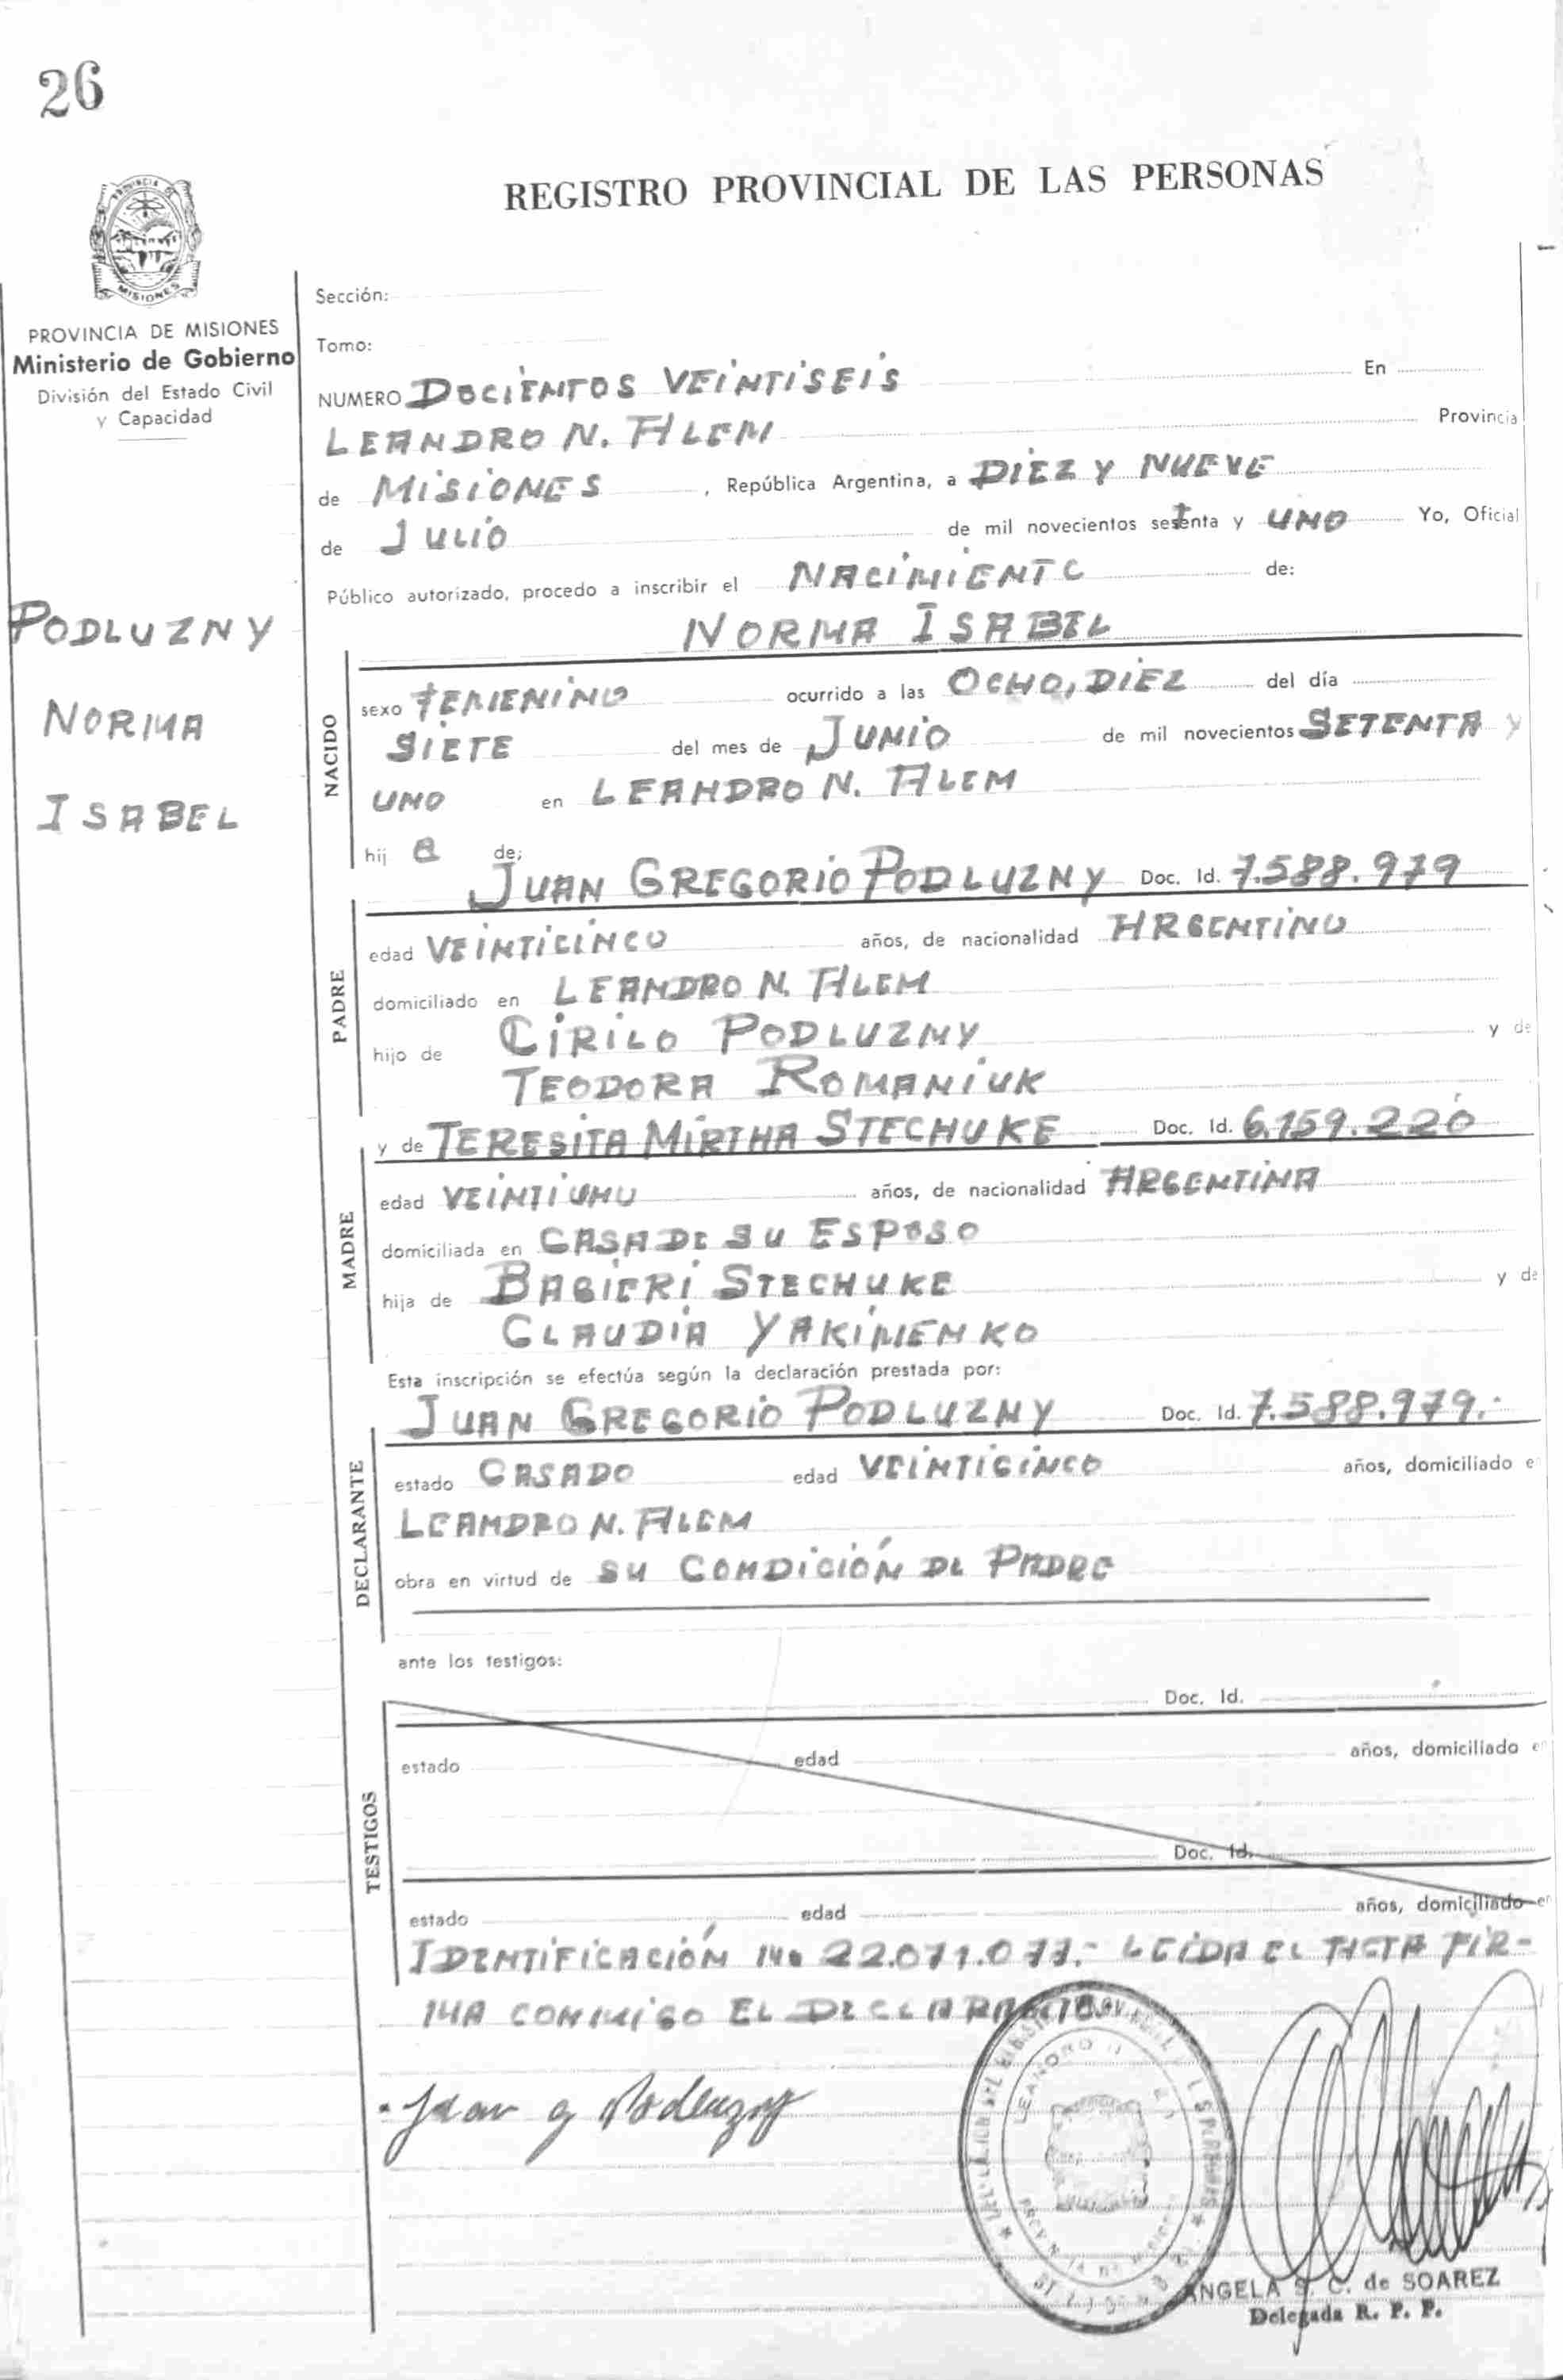 26
REGISTRO PROVINCIAL DE LAS PERSONAS
PROVINCIA DE MISIONES
Ministerio de Gobierno
División del Estado Civil
y Capacidad
PODLUZNY
NORMA
ISABEL
Sección:
Tomo:
NUMERO DOCIENTOS VEINTISEIS En
LEANDRO N. ALEM Provincia
de MISIONES , República Argentina, a DIEZ Y NUEVE
de JULIO de mil novecientos setenta y UNO Yo, Oficial
Público autorizado, procedo a inscribir el NACIMIENTO de:
NORMA ISABEL
NACIDO
sexo FEMENINO ocurrido a las OCHO, DIEZ del día
SIETE del mes de JUNIO de mil novecientos SETENTA y
UNO en LEANDRO N. ALEM
hij a de;
JUAN GREGORIO PODLUZNY Doc. Id. 7.588.979
PADRE
edad VEINTICINCO años, de nacionalidad ARGENTINO
domiciliado en LEANDRO N. ALEM
hijo de CIRILO PODLUZNY y de
TEODORA ROMANIUK
y de TERESITA MIRTHA STECHUKE Doc. Id. 6.159.220
MADRE
edad VEINTIUNO años, de nacionalidad ARGENTINA
domiciliada en CASA DE SU ESPOSO
hija de BASIERI STECHUKE y de
CLAUDIA YAKIMENKO
Esta inscripción se efectúa según la declaración prestada por:
JUAN GREGORIO PODLUZNY Doc. Id. 7.588.979.-
DECLARANTE
estado CASADO edad VEINTICINCO años, domiciliado e
LEANDRO N. ALEM
obra en virtud de SU CONDICIÓN DE PADRE
ante los testigos:
Doc. Id.
TESTIGOS
estado edad años, domiciliado en
Doc. Id.
estado edad años, domiciliado en
IDENTIFICACIÓN No 22.071.077.- LEIDA EL ACTA FIR-
MA CONMIGO EL DECLARANTE
Juan G Podluzny
LEANDRO N
ANGELA S. C. de SOAREZ
Delegada R. P. P.